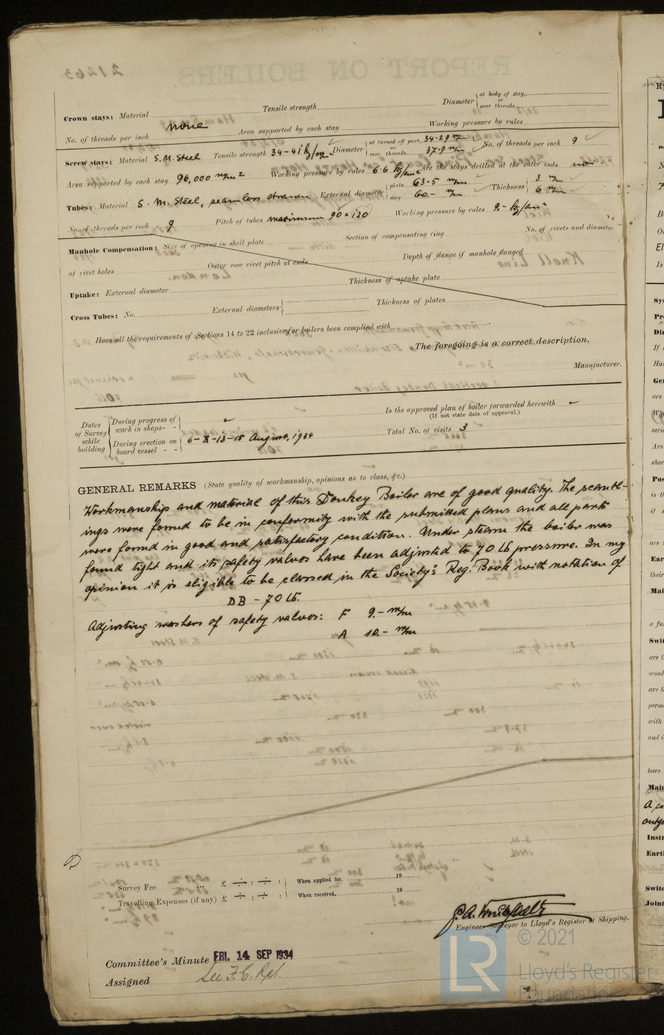 Crown stays: Material none Tensile strength Diameter at body of stay, or over threads
No. of threads per inch Area supported by each stay Working pressure by rules
Screw stays: Material S.M. Steel Tensile strength 34-41 kg/mm² Diameter at turned off part, 34.29 m/m or over threads 37.9 m/m No. of threads per inch 9
Area supported by each stay 96,000 m/m² Working pressure by rules 6.6 kg/cm² Are the stays drilled at the outer ends no
Tubes: Material S.M. Steel, seamless drawn External diameter plain 63.5 m/m stay 60.- m/m Thickness 3 m/m 6 m/m
No. of threads per inch 9 Pitch of tubes maximum 90 x 120 Working pressure by rules 9.- kg/cm²
Manhole Compensation: Size of opening in shell plate Section of compensating ring No. of rivets and diameter
of rivet holes Outer row rivet pitch at ends Depth of flange if manhole flanged
Uptake: External diameter Thickness of uptake plate
Cross Tubes: No. External diameters Thickness of plates
Have all the requirements of Sections 14 to 22 inclusive for boilers been complied with
The foregoing is a correct description,
Manufacturer.
Dates of Survey while building
During progress of work in shops - -
During erection on board vessel - - 6-8-13-15 August, 1934
Is the approved plan of boiler forwarded herewith
(If not state date of approval.)
Total No. of visits 3
GENERAL REMARKS (State quality of workmanship, opinions as to class, &c.)
Workmanship and material of this Donkey Boiler are of good quality. The scantl-
ings were found to be in conformity with the submitted plans and all parts
were found in good and satisfactory condition. Under steam the boiler was
found tight and its safety valves have been adjusted to 70 lb pressure. In my
opinion it is eligible to be classed in the Society's Reg. Book with notation of
DB - 70 lb.
Adjusting washers of safety valves: F 9.- m/m
A 10.- m/m
Survey Fee £ : : When applied for, 19
Travelling Expenses (if any) £ : : When received, 19
Engineer Surveyor to Lloyd's Register of Shipping.
Committee's Minute FRI. 14 SEP 1934
Assigned See F.E. Rpt.
© 2021
LR
Lloyd's Register
Foundation